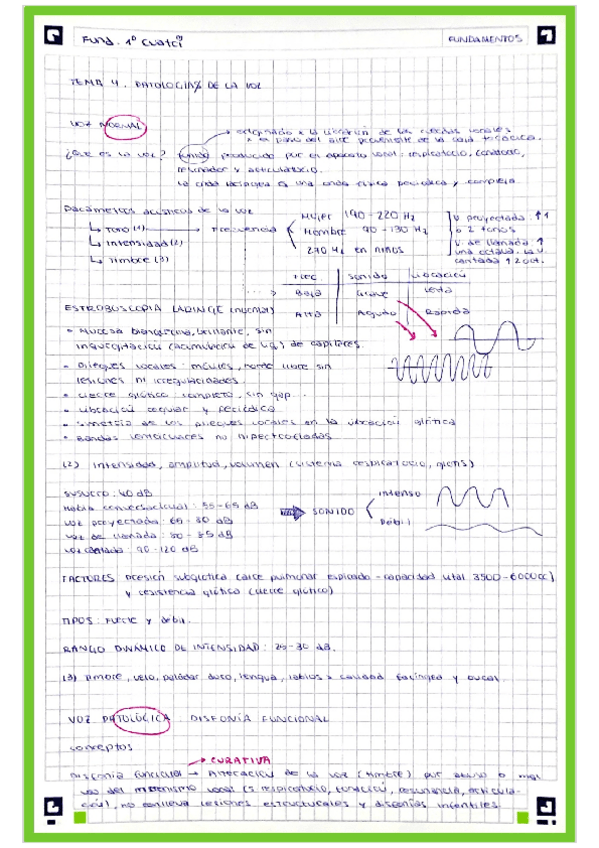 Fund. 1º Cuatri
FUNDAMENTOS
TEMA 4. PATOLOGÍAS DE LA VOZ
VOZ NORMAL
originado x la vibración de las cuerdas vocales
x el paso del aire proveniente de la caja torácica.
¿Qué es la voz? Sonido producido por el aparato vocal: respiratorio, fonatorio,
resonador y articulatorio.
La onda laríngea es una onda física periódica y compleja
Parámetros acústicos de la voz
Tono (1) → Frecuencia
Intensidad (2)
Timbre (3)
Mujer 190-220 Hz
Hombre 90-130 Hz
270 Hz en niños
V. proyectada: ↑1
o 2 tonos
V. de llamada ↑
una octava. La v.
cantada ↑ 2 oct.
Frec Sonido Vibración
Baja Grave Lenta
Alta Agudo Rápida
ESTROBOSCOPIA LARÍNGE (normal)
• Mucosa blanquecina, brillante, sin
(acumulación de líq.) de capilares.
• Pliegues vocales: móviles, borde libre sin
lesiones ni irregularidades.
• Cierre glótico: completo, sin gap.
• Vibración regular y periódica
• Simetría de los pliegues vocales en la vibración glótica
• Bandas ventriculares no hipertrofiadas
(2) Intensidad, amplitud, volumen (sistema respiratorio, glotis)
SUSURRO: 40 dB
Habla conversacional: 55-65 dB
voz proyectada: 65-80 dB
voz de llamada: 80-85 dB
voz cantada: 90-120 dB
SONIDO
intenso
Débil
FACTORES presión subglótica (aire pulmonar espirado - capacidad vital 3500-6000cc)
y resistencia glótica (cierre glótico)
TIPOS: Fuerte y débil.
RANGO DINÁMICO DE INTENSIDAD: 25-30 dB.
(3) Timbre, velo, paladar duro, lengua, labios > cavidad faríngea y bucal.
VOZ PATOLÓGICA: DISFONÍA FUNCIONAL
conceptos
CURATIVA
Disfonía funcional → Alteración de la voz (timbre) por abuso o mal
uso del mecanismo vocal (= respiratorio, fonación, resonancia, articula-
ción), no conlleva lesiones estructurales y disfonías infantiles